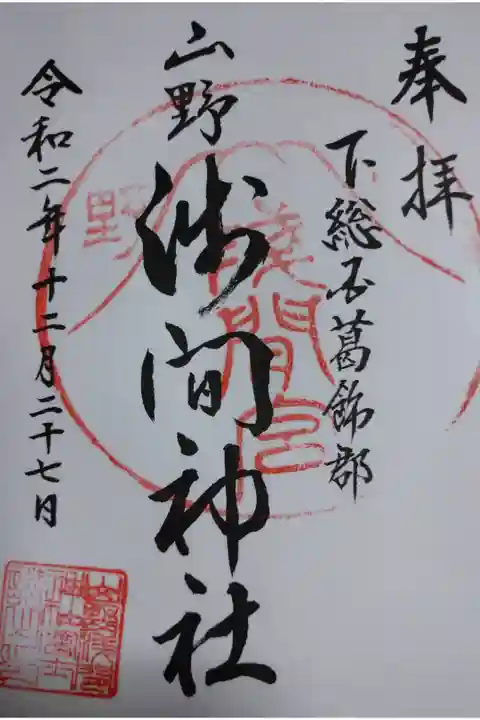 奉拝
下総国葛飾郡
山野
浅間神社
令和二年十二月二十七日
野
浅間宮